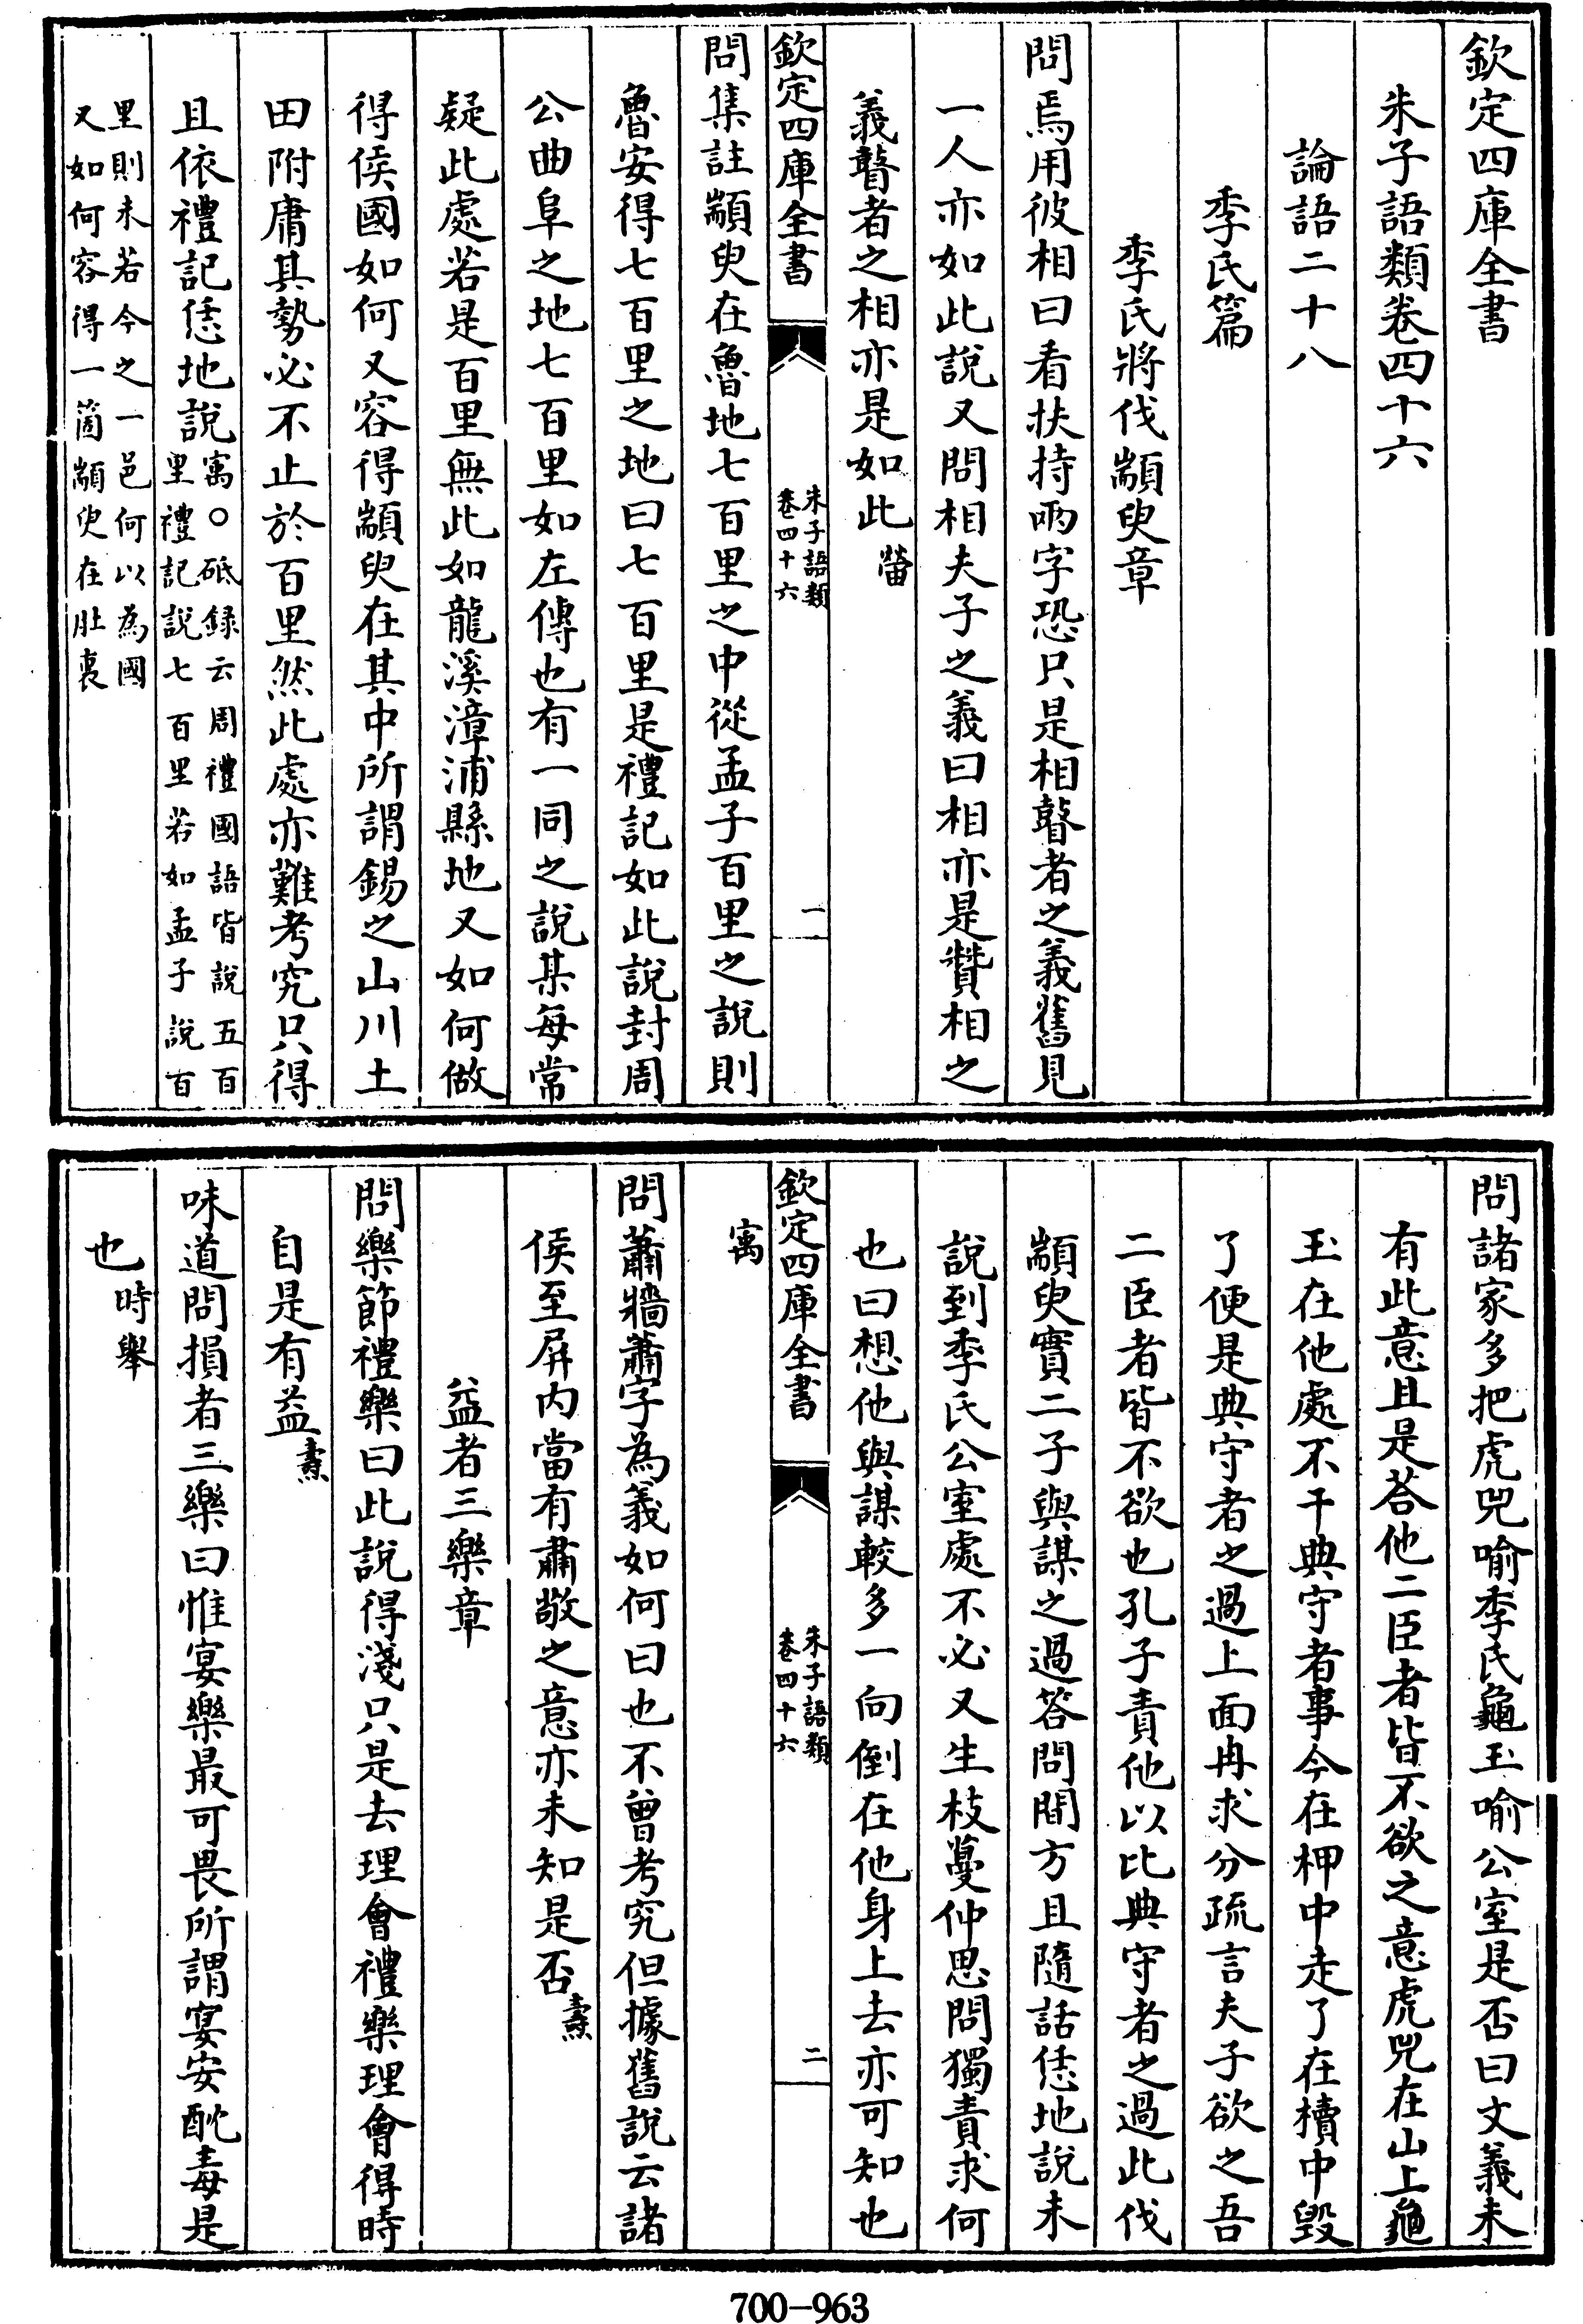 欽定四庫全書
朱子語類卷四十六
論語二十八
季氏篇
季氏將伐顓臾章
問焉用彼相曰看扶持兩字恐只是相瞽者之義舊見
一人亦如此說又問相夫子之義曰相亦是贊相之
義瞽者之相亦是如此㽦
欽定四庫全書
朱子語類
卷四十六
一
問集註顓臾在魯地七百里之中從孟子百里之說則
魯安得七百里之地曰七百里是禮記如此說封周
公曲阜之地七百里如左傳也有一同之說某每常
疑此處若是百里無此如龍溪漳浦縣地又如何做
得侯國如何又容得顓臾在其中所謂錫之山川土
田附庸其勢必不止於百里然此處亦難考究只得
且依禮記恁地說㝢○砥録云周禮國語皆說五百
里禮記說七百里若如孟子說百
里則未若今之一邑何以為國
又如何容得一箇顓臾在肚裏
問諸家多把虎兕喻季氏龜玉喻公室是否曰文義未
有此意且是荅他二臣者皆不欲之意虎兕在山上龜
玉在他處不干典守者事今在柙中走了在櫝中毀
了便是典守者之過上面冉求分疏言夫子欲之吾
二臣者皆不欲也孔子責他以比典守者之過此伐
顓臾實二子與謀之過荅問間方且隨話恁地說未
說到季氏公室處不必又生枝蔓仲思問獨責求何
也曰想他與謀較多一向倒在他身上去亦可知也
欽定四庫全書
朱子語類
卷四十六
二
㝢
問蕭牆蕭字為義如何曰也不曾考究但據舊說云諸
侯至屏内當有肅敬之意亦未知是否燾
益者三樂章
問樂節禮樂曰此說得淺只是去理會禮樂理會得時
自是有益燾
味道問損者三樂曰惟宴樂最可畏所謂宴安酖毒是
也時舉
700-963